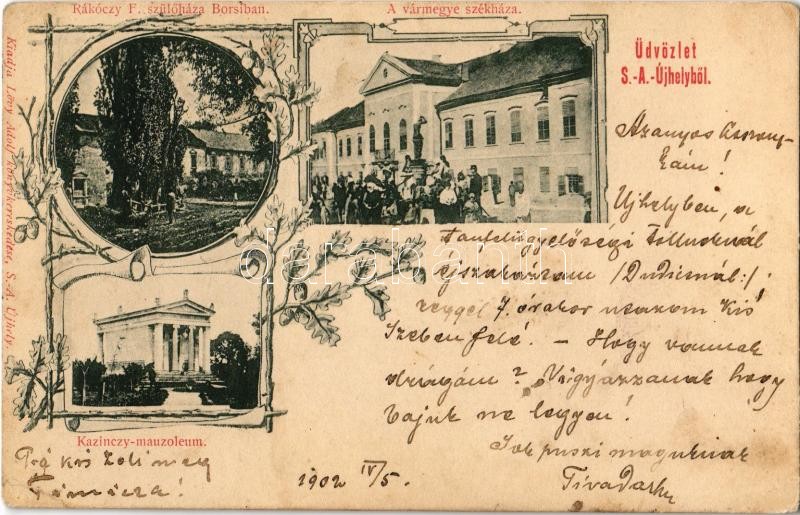 Rákóczy F. szülőháza Borsiban.
A vármegye székháza.
Üdvözlet
S.-A.-Újhelyből.
Kiadja Lövy Adolf könyvkereskedése, S.-A. Újhely.
Aranyos Asszony-
kám!
Ujhelyben, a
tanfelügyelőségi
éjszakáztam /Dudicsnál:/.
reggel 7. órakor utazom Kis
Szeben felé. – Hogy vannak
drágám? Vigyázzanak hogy
bajuk ne legyen!
Sok puszi maguknak
Tivadar
1902 IV/5.
Kazinczy-mauzoleum.
kis Zoli meg
darabanth